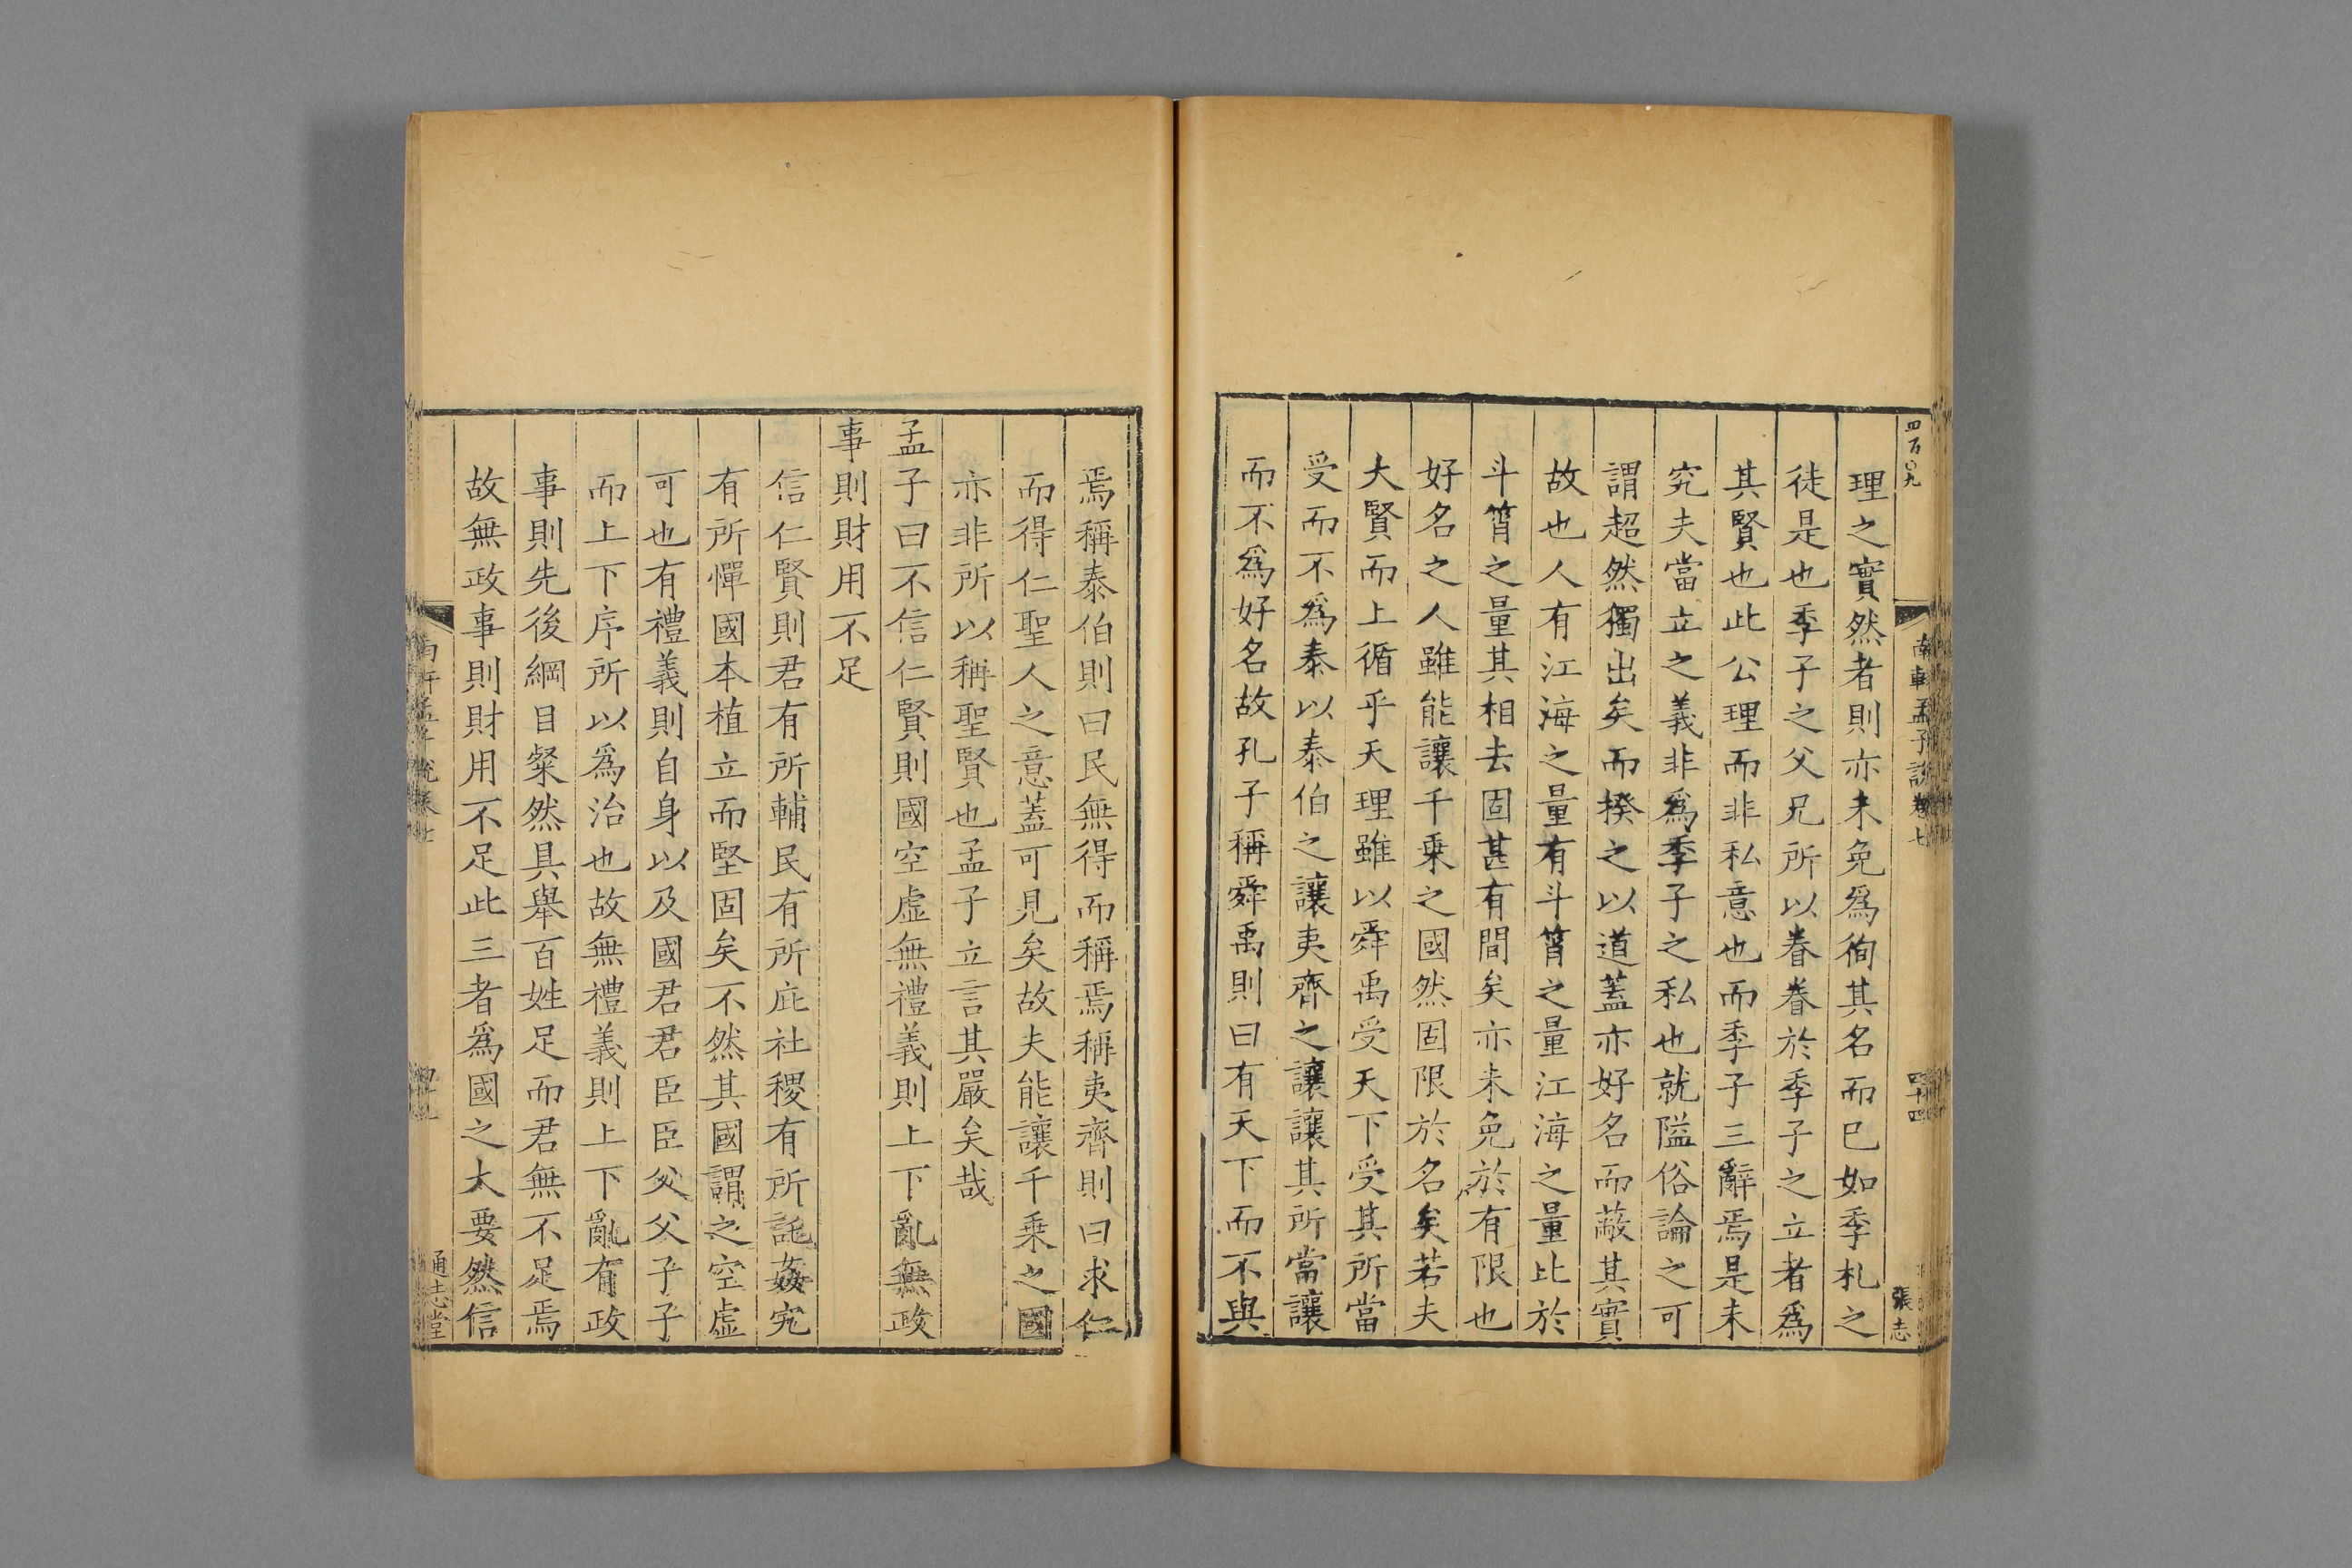 四百兄
南軒孟子說卷七
四十四
張志
理之實然者則亦未免爲徇其名而已如季札之
徒是也季子之父兄所以眷眷於季子之立者爲
其賢也此公理而非私意也而季子三辭焉是未
究夫當立之義非爲季子之私也就隘俗論之可
謂超然獨出矣而揆之以道蓋亦好名而蔽其實
故也人有江海之量有斗筲之量江海之量比於
斗筲之量其相去固甚有間矣亦未免於有限也
好名之人雖能讓千乗之國然固限於名矣若夫
大賢而上循乎天理雖以舜禹受天下受其所當
受而不爲泰以泰伯之讓夷齊之讓讓其所當讓
而不爲好名故孔子稱舜禹則曰有天下而不與
焉稱泰伯則曰民無得而稱焉稱夷齊則曰求仁
而得仁聖人之意蓋可見矣故夫能讓千乗之國
亦非所以稱聖賢也孟子立言其嚴矣哉
孟子曰不信仁賢則國空虛無禮義則上下亂無政
事則財用不足
信仁賢則君有所輔民有所庇社稷有所託姦宄
有所憚國本植立而堅固矣不然其國謂之空虛
可也有禮義則自身以及國君君臣臣父父子子
而上下序所以爲治也故無禮義則上下亂有政
事則先後綱目粲然具舉百姓足而君無不足焉
故無政事則財用不足此三者爲國之大要然信
南軒孟子說卷七
通志堂